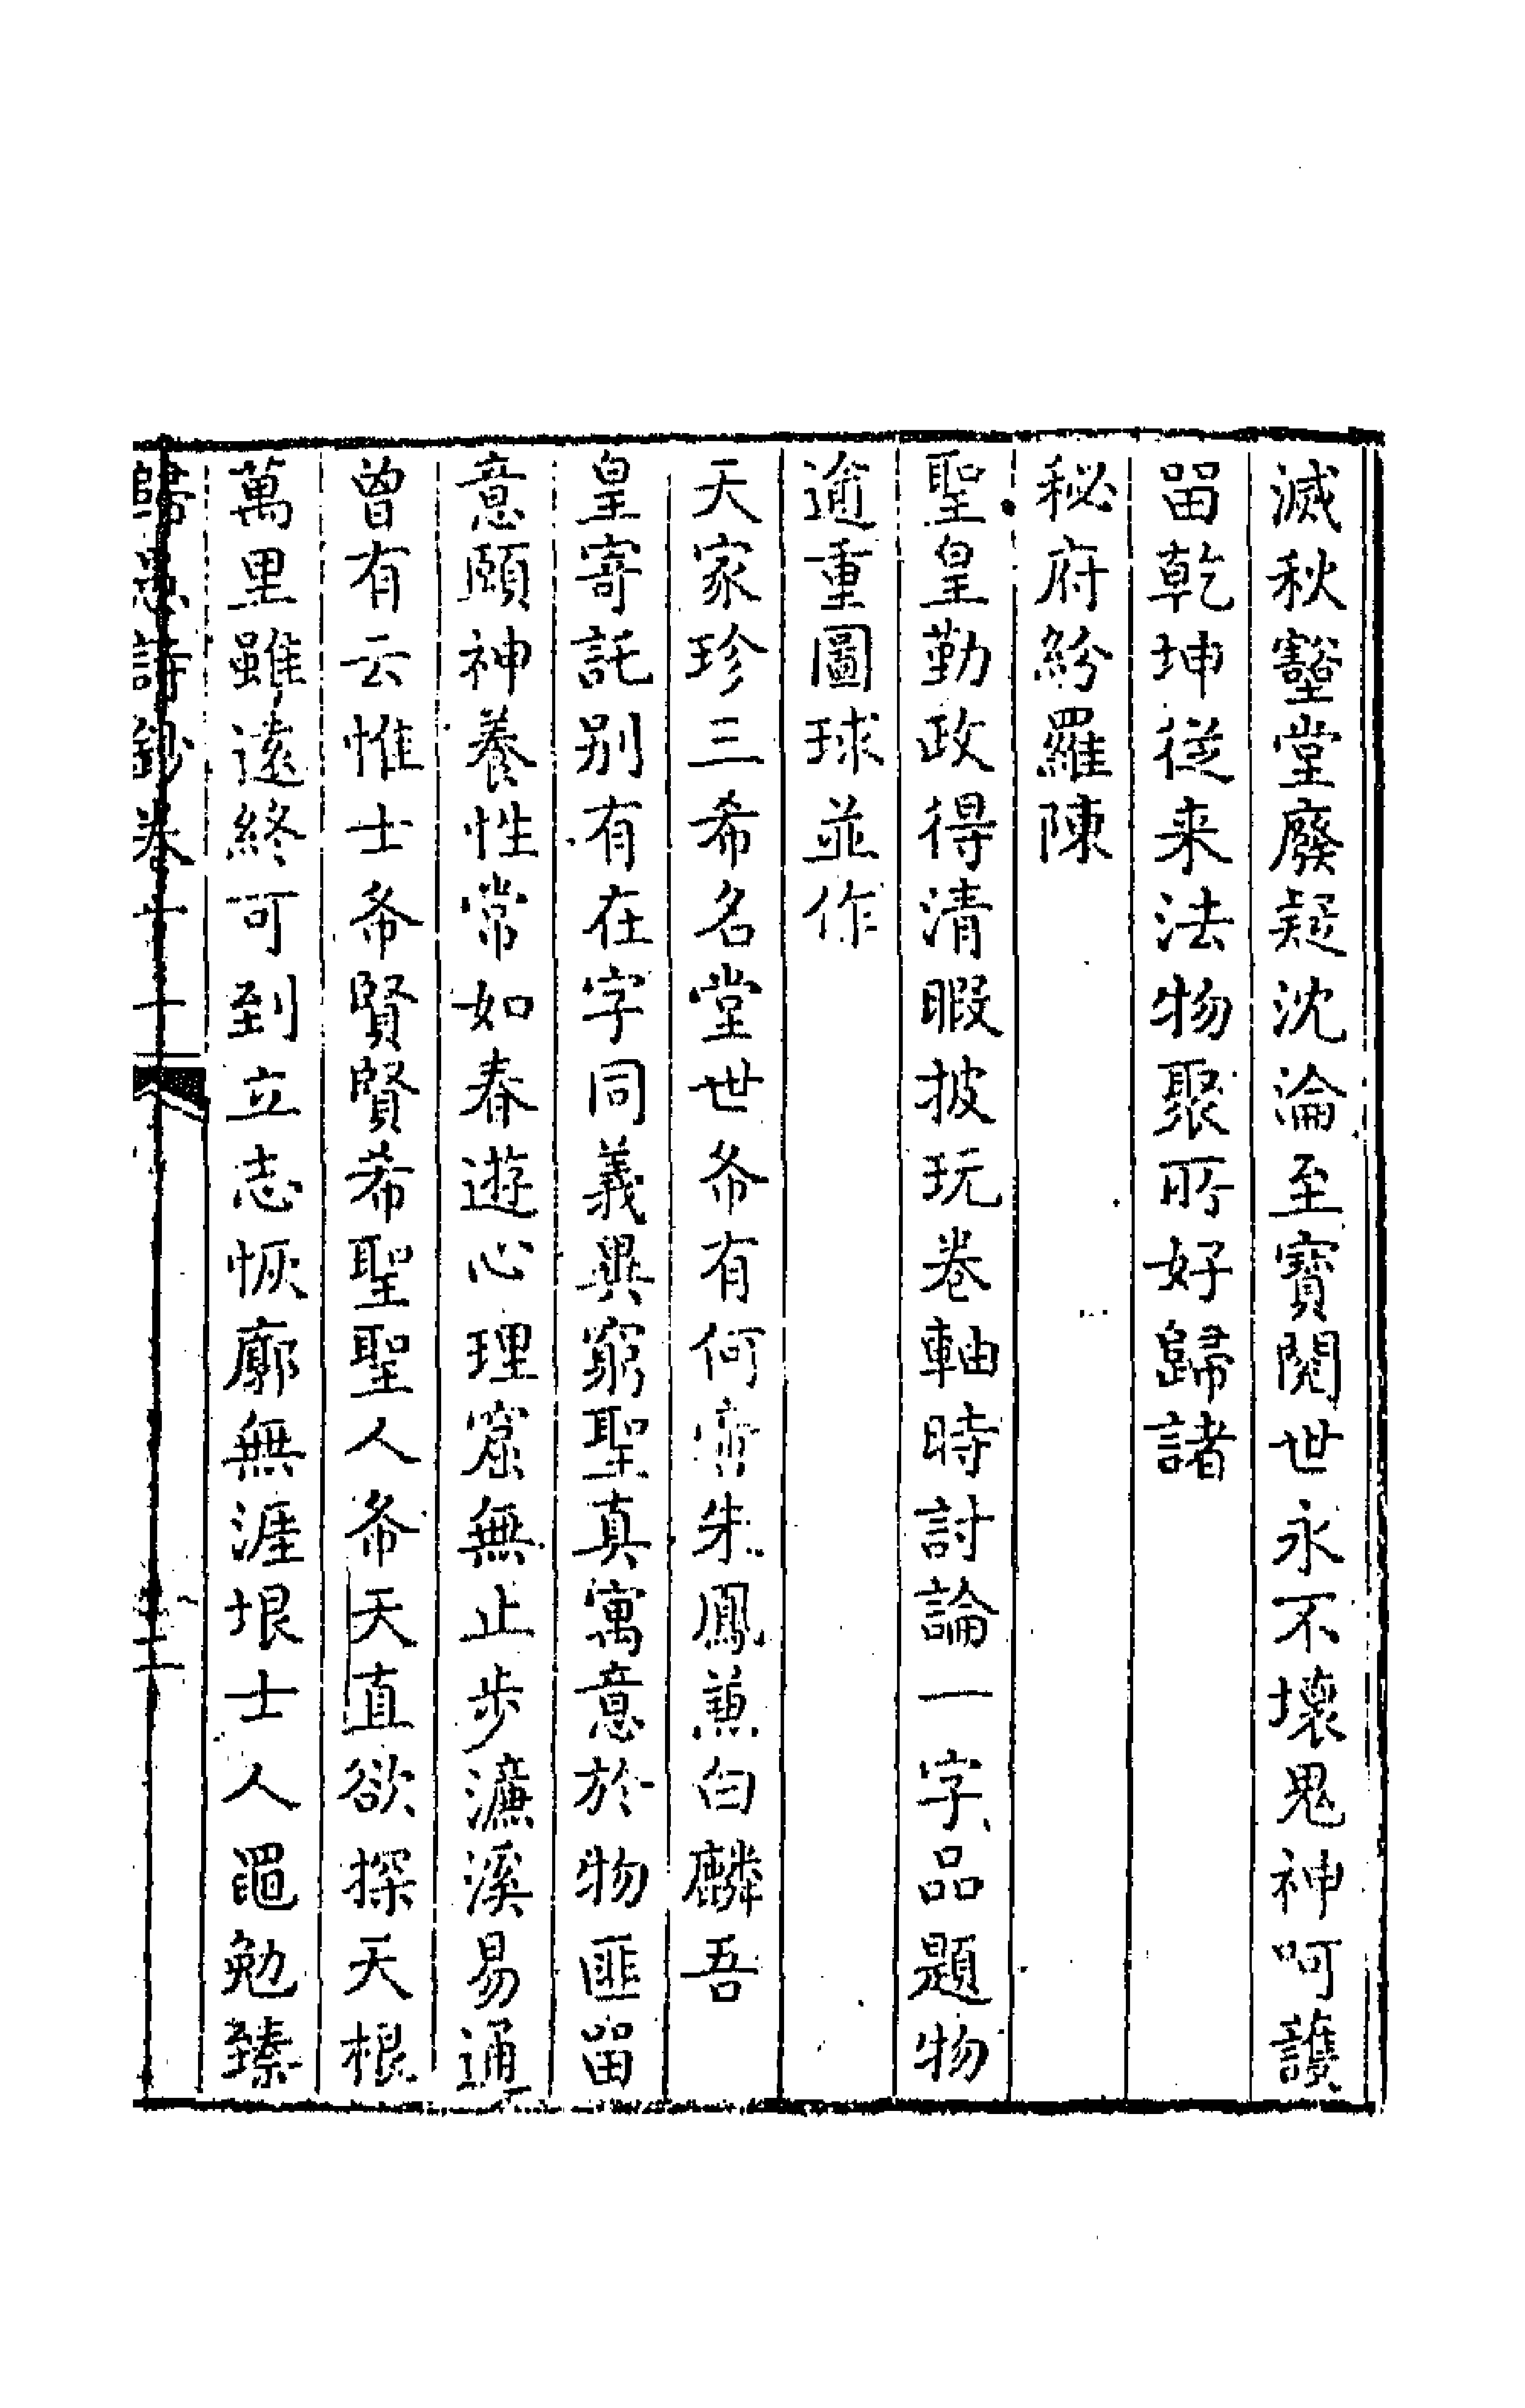 滅秋壑堂廢疑沈淪至寶閱世永不壞鬼神呵護
留乾坤從来法物聚所好歸諸
秘府紛羅陳
聖皇勤政得清暇披玩卷軸時討論一字品題物
逾重圖球並作
天家珍三希名堂世希有何啻朱鳳兼白麟吾
皇寄託别有在字同義異窮聖真寓意於物匪留
意頤神養性常如春遊心理窟無止步濂溪易通
曾有云惟士希賢賢希聖聖人希天直欲探天根
萬里雖遠終可到立志恢廓無涯垠士人黽勉臻
歸愚詩鈔卷十十